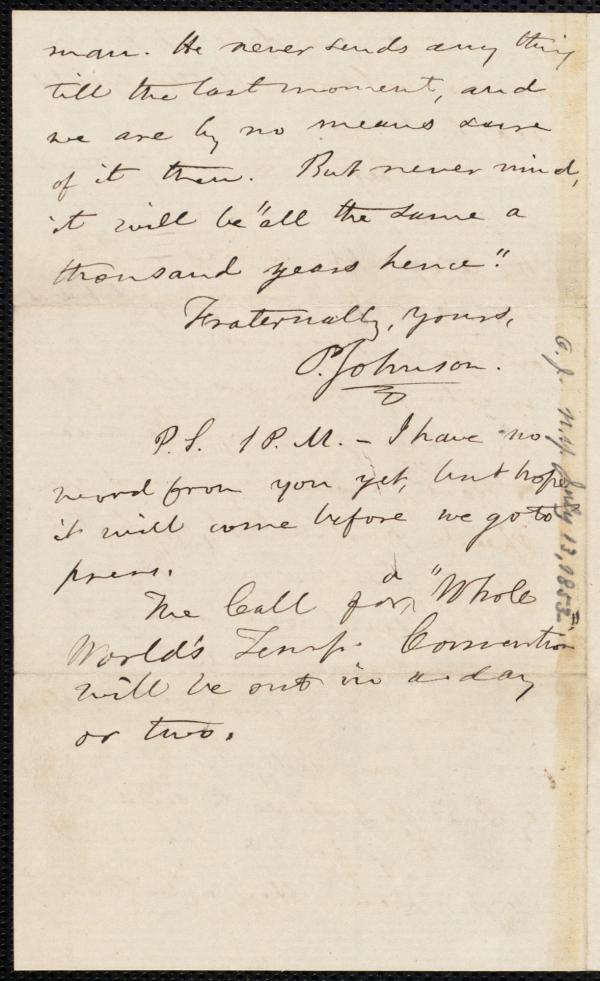 man. He never sends any thing
till the last moment, and
we are by no means sure
of it then. But never mind,
it will be "all the same a
thousand years hence".
Fraternally, yours,
Johnson.
P.S. 1 P.M. – I have no
word from you yet, but hope
it will come before we go to
press.
The Call for a "Whole
World's Temp. Convention
will be out in a day
or two.
N.Y. July 13, 1853